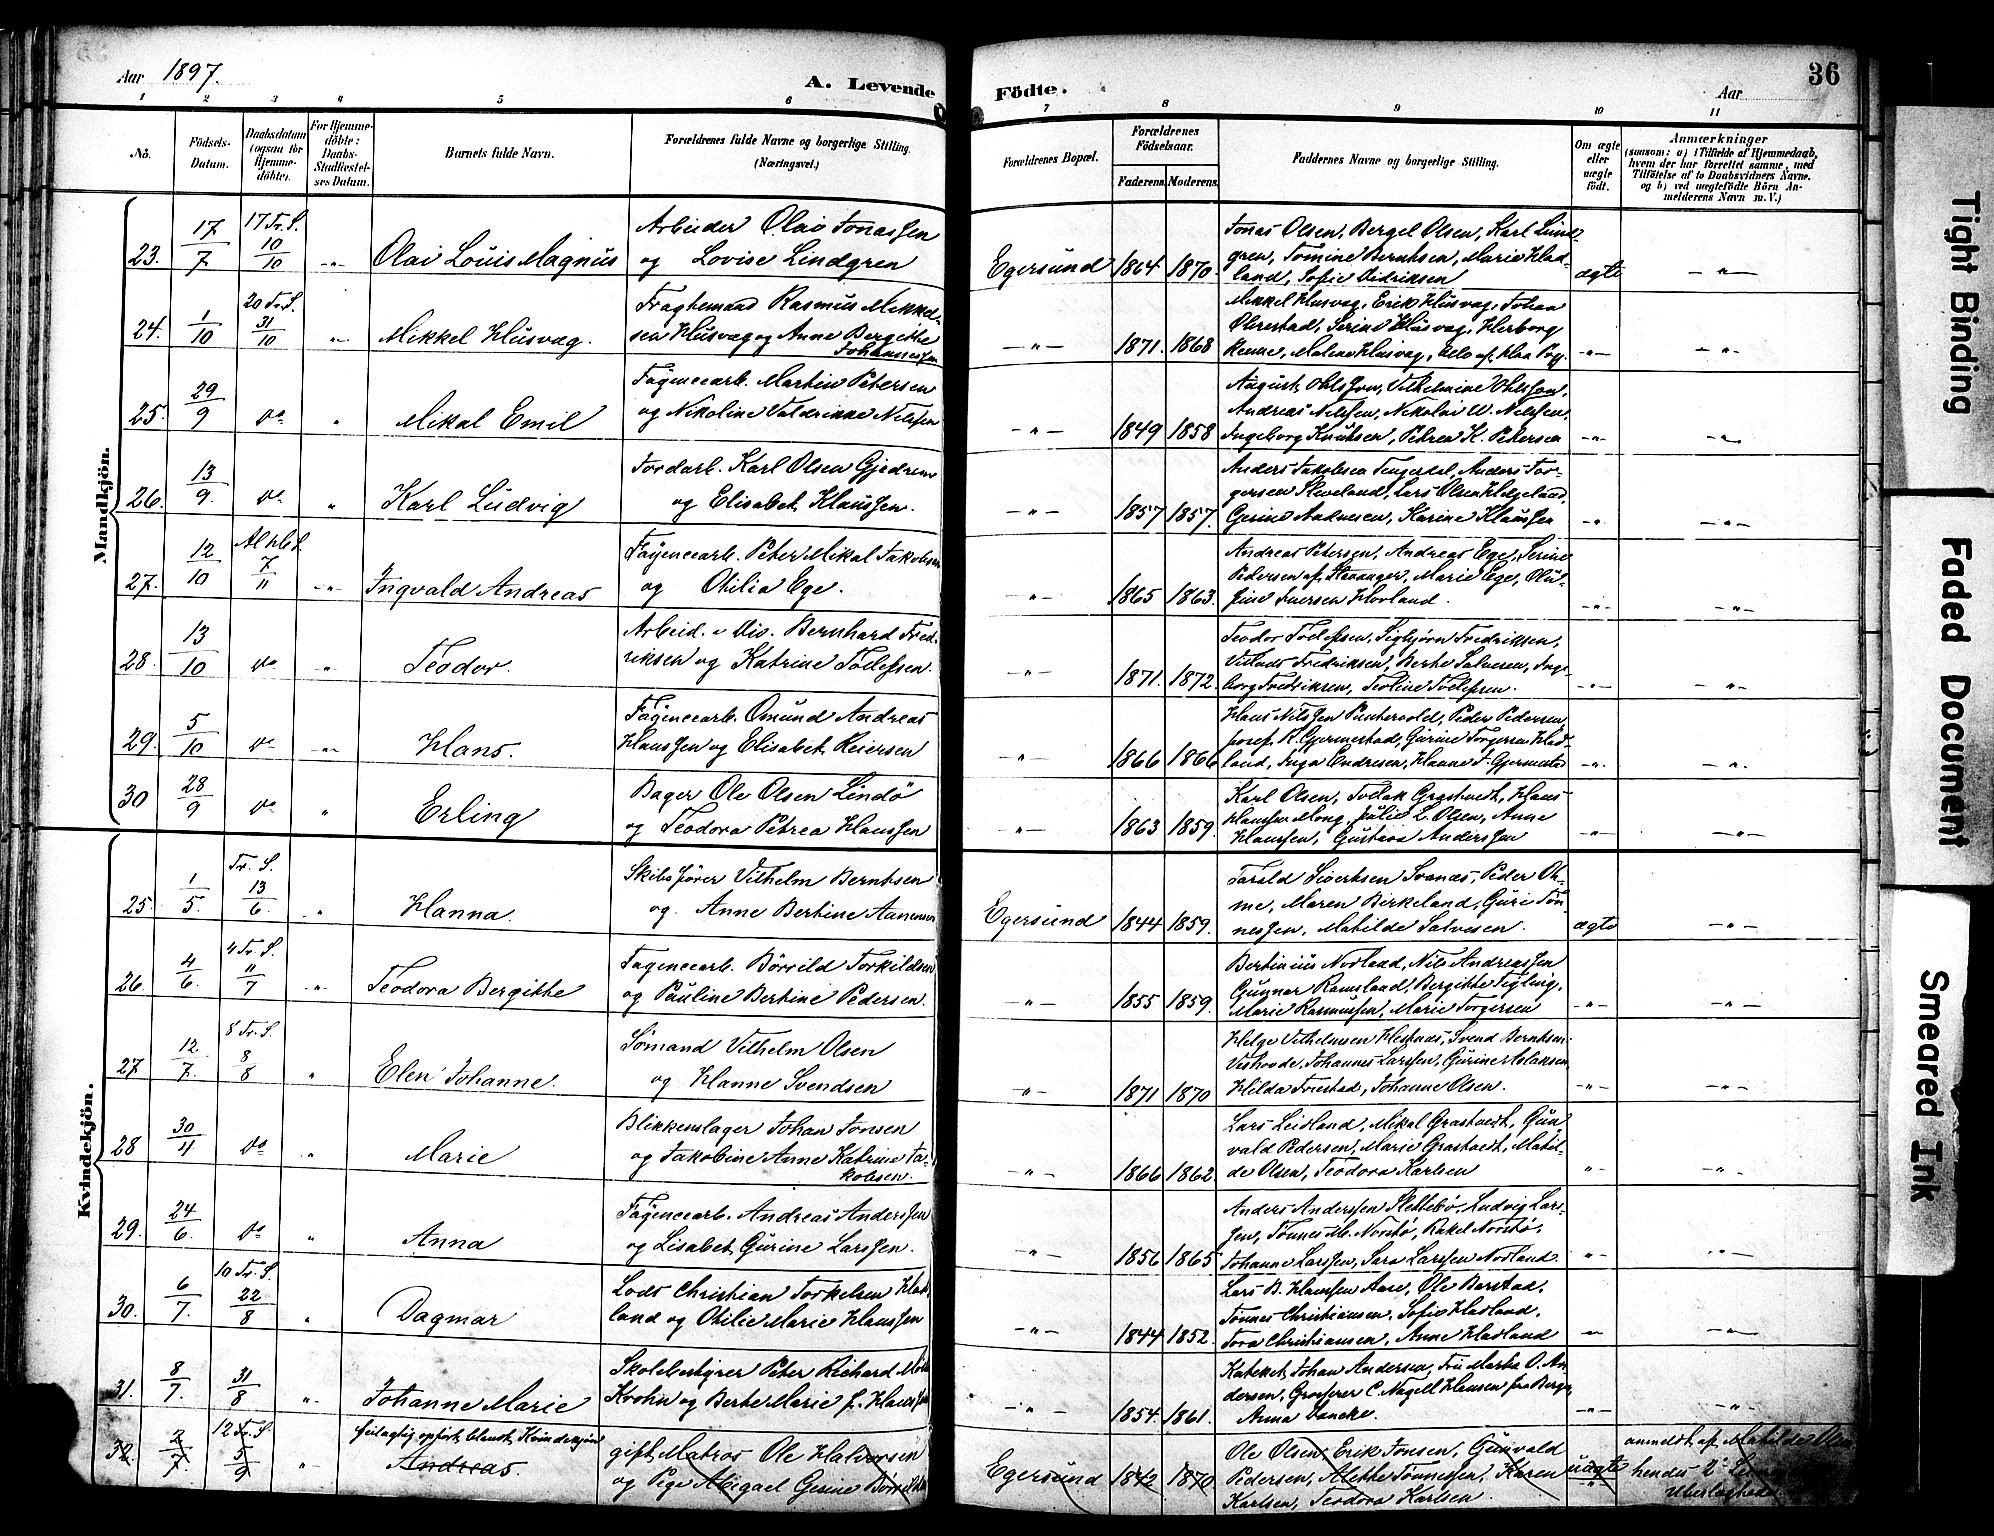 Aar 1897.
A. Levende
Födte.
Aar
36
1 2 3 4 5 6 7 8 9 10 11
No.
Födsels-
Datum.
Daabsdatum
(ogsaa för
Hjemme-
döbte).
For Hjemme-
döbte:
Daabs-
Stadfæstel-
ses Datum.
Barnets fulde Navn.
Forældrenes fulde Navne og borgerlige Stilling.
(Næringsvei.)
Forældrenes Bopæl.
Forældrenes
Födselsaar.
Faderens. Moderens.
Faddernes Navne og borgerlige Stilling.
Om ægte
eller
uægte
födt.
Anmærkninger
(saasom: a) i Tilfælde af Hjemmedaab,
hvem der har forrettet samme, med
Tilföielse af to Daabsvidners Navne.
og b) ved uægtefödte Börn An-
melderens Navn m. V.)
Mandkjön.
23. 17/7 17 Tr. S. 10/10 -„- Olai Louis Magnus
Arbeider Olai Jonassen
og Lovise Lindgren
Egersund 1864 1870
Jonas Olsen, Bergel Olsen, Karl Lind-
gren, Tomine Berntsen, Marie Had-
land, Sofie Didriksen
ægte -„-
24. 1/10 20 Tr. S. 31/10 „ Mikkel Husvæg.
Fragtemand Rasmus Mikkel-
sen Husvæg og Anne Bergitte
Johannessen
-„- 1871. 1868
Mikkel Husvæg, Erik Husvæg, Johan
Ølrestad, Serine Husvæg, Herborg
Malene Husvæg,
-„- -„-
25. 29/9 do „ Mikal Emil
Fayencearb. Martin Petersen
og Nikoline Valdrikke Nilssen
-„- 1849 1858
August Ohlsson, Vilhelmine Ohlsson,
Andreas Nilssen, Nikolai W. Nilssen,
Ingeborg Knutsen, Petrea K. Petersen
-„- -„-
26. 13/9. do „ Karl Ludvig
Jordarb. Karl Olsen Gjedrem
og Elisabet Klaussen.
-„- 1857 1857.
Anders Jakobsen Tengesdal, Anders Tor-
gersen Sleveland, Lars Olsen Helgeland,
Gurine Andresen, Karine Klaussen
-„- -„-
27. 12/10 7/11 -„- Ingvald Andreas
Fayencearb. Peter Mikal Jakobsen
og Otilia Ege.
-„- 1865 1863.
Andreas Petersen, Andreas Ege, Serine
Pedersen af Stavanger, Marie Ege, Olu-
fine Iversen Hovland.
-„- -„-
28. 13/10 do „ Teodor.
Arbeid. v Div. Bernhard Fred-
riksen og Katrine Tollefsen.
-„- 1871. 1872.
Teodor Tollefsen, Sigbjørn Fredriksen,
Fredriksen, Berte Salvesen, Inge-
borg Fredriksen, Teoline Tollefsen.
-„- -„-
29. 5/10 do -„- Hans.
Fayencearb. Omund Andreas
Hanssen og Elisabet Reiersen
-„- 1866 1866
Hans Nilssen Puntervold, Peder Pedersen,
Josef K. Gjermestad, Gurine Torgersen Had-
land, Inga Endresen, Hanne T. Gjermestad
-„- -„-
30 28/9 do „ Erling
Bager Ole Olsen Lindö
og Teodora Petrea Hanssen
-„- 1863 1859.
Karl Olsen, Tollak Grastvedt, Hans
Hanssen Mong, Julie L. Olsen, Anne
Hanssen, Gustava Anderssen
-„- -„-
Kvindekjön.
25. 1/5. Tr. S. 13/6. „ Hanna.
Skibsfører Vilhelm Berntsen
og Anne Bertine Aanensen
Egersund 1844 1859.
Tarald Sivertsen Svanæs, Peder Oh-
me, Maren Birkeland, Guri Tön-
nessen, Matilde Salvesen.
ægte -„-
26. 4/6. 4 Tr. S. 11/7 -„- Teodora Bergitte
Fayencearb. Börrild Torkildsen
og Pauline Bertine Pedersen.
-„- 1855 1859.
Bertinius Norland, Nils Andreassen
Gunnar Ramsland, Bergitte Tegling,
Marie Rasmussen, Marie Torgersen
-„- -„-
27 12/7. 8 Tr. S. 8/8 „ Elen Johanne.
Sømand Vilhelm Olsen
og Hanne Svendsen
-„- 1871 1870
Helge Vilhelmsen Hestnæs, Svend Berntsen
Vestvode, Johannes Larssen, Gurine Aslaksen
Hilda Frestad, Johanne Olsen.
-„- -„-
28 30/4. do „ Marie
Blikkenslager Johan Jonsen
og Jakobine Anne Katrine Ja-
kobsen.
-„- 1866 1862.
Lars Leidland, Mikal Grastvedt, Gun-
vald Pedersen, Marie Grastvedt, Matil-
de Olsen, Teodora Karlsen
„ -„-
29. 24/6. do „ Anna
Fayencearb. Andreas Anderssen
og Lisabet Gurine Larssen.
-„- 1856 1865
Anders Anderssen Slettebö, Ludvig Lars-
sen, Tönnes M. Norstö, Rakel Norstö,
Johanne Larssen, Sara Larssen Norland
-„- -„-
30. 6/7. 10 Tr. S. 22/8 „ Dagmar
Lods Christian Torkelsen Had-
land og Otilie Marie Hanssen
-„- 1844 1852.
Lars B. Hanssen Aase, Ole Barstad,
Tönnes Christiansen, Sofie Hadland,
Tora Christiansen, Anne Hadland
-„- -„-
31. 8/7. 31/8 „ Johanne Marie
Skolebestyrer Peter Richard
Krohn og Berte Marie f. Hanssen
-„- 1854. 1861.
Kateket Johan Andersen, Fru Marta O. An-
dersen, Grosserer C. Nagell Hansen fra Bergen,
Anna Vancke.
-„- -„-
32. 2/7. 12 Tr. S. 5/9 „ feilagtig opført blandt Kvindekjön
Andreas.
gift Matros Ole Halvorsen
og Pige Abigael Gesine
Egersund 1842 1870
Ole Olsen, Erik Jonsen, Gunvald
Pedersen, Alette Tönnessen, Karen
Karlsen, Teodora Karlsen.
uægte
anmeldt af Matilde Olsen
hendes 2det
Tight Binding
Faded Document
Smeared Ink